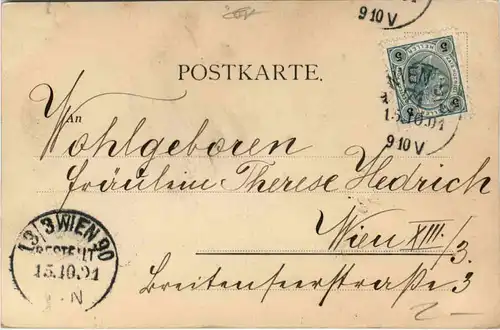 9 10 V
5 HELLER 5
5 5
POSTKARTE.
WIEN
15.10.01
9 10 V
An
Wohlgeboren
Fräulein Therese Hedrich
Wien XIII/3.
Breitenseerstraße 3
13/3 WIEN 90
BESTELLT
15.10.01
N